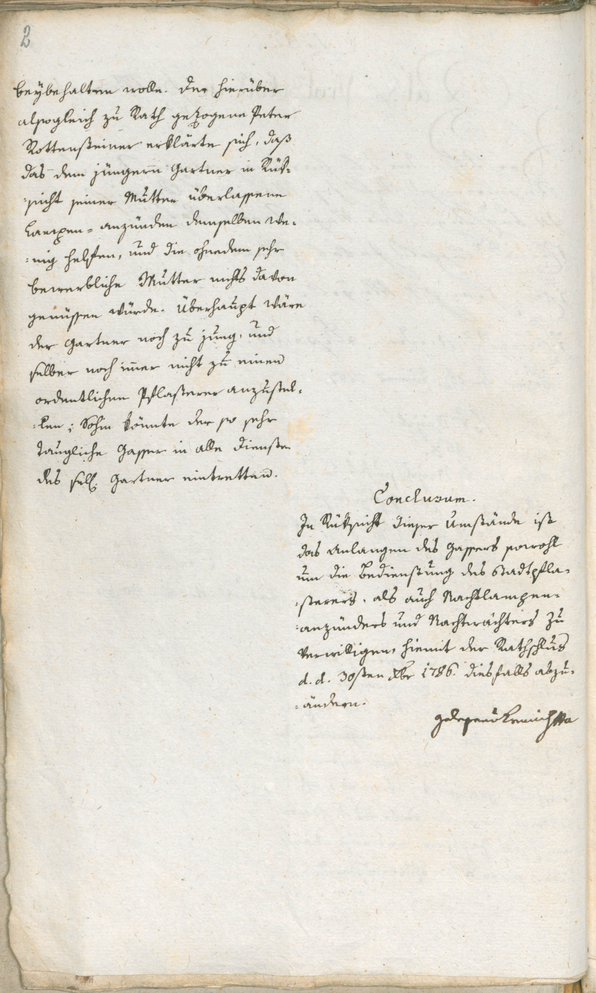 2
beÿbehalten wolle. Der hierüber
alsogleich zu Rath gezogene Peter
Rottensteiner erklärte sich, daß
das dem jüngern Gartner in Rük-
:sicht seiner Mutter überlassene
Lampen-anzünden demselben we-
:nig helfen, und die ohnedem sehr
bewerbliche Mutter nichts davon
genüssen würde. Überhaupt wäre
der Gartner noch zu jung, und
selber noch immer nicht zu einen
ordentlichen Pflasterer anzustel-
:len; Sohin könnte der so sehr
taugliche Gasser in alle Dienste
des sell. Gartner eintretten.
Conclusum.
In Rüksicht dieser Umstände ist
das Anlangen des Gassers sowohl
um die Bedienstung des Stadtpfla-
:sterers, als auch Nachtlampen-
:anzünders und Nachtwächters zu
verwilligen, hiemit der Rathschluß
d. d. 30sten xbr 1786 diesfalls abzu-
:ändern.